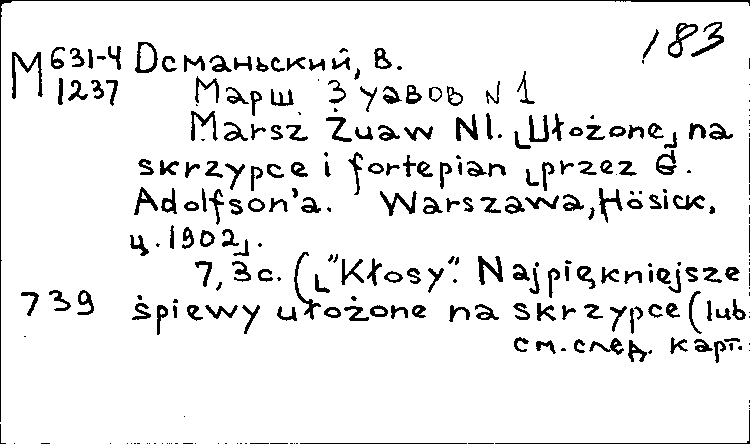 183
М 631-4 Османьский, В.
1237 Марш Зуавов N 1
Marsz Żuaw N1. [Ułożone] na
skrzypce i fortepian [przez G.
Adolfson'a. Warszawa, Hösick,
ц. 1902].
7, 3 с. (["Kłosy". Najpiękniejsze
739 śpiewy ułożone na skrzypce (lub
см. след. карт.